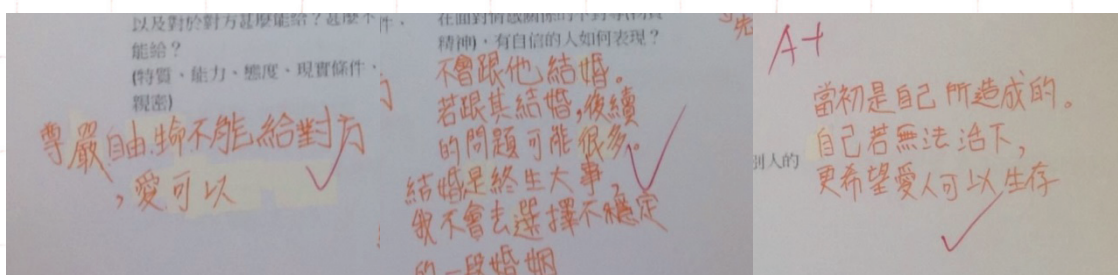 以及對於對方甚麼能給？甚麼不
能給？
(特質、能力、態度、現實條件、
親密)
尊嚴.自由.命不能給對方
，愛可以
件、
在面對情感關係的不對等(物質
精神)，有自信的人如何表現？
先
不會跟他結婚。
若跟其結婚,後續
的問題可能很多。
結婚是終生大事，
我不會去選擇不穩定
的一段婚姻
A+
當初是自己所造成的。
自己若無法活下，
別人的
更希望愛人可以生存